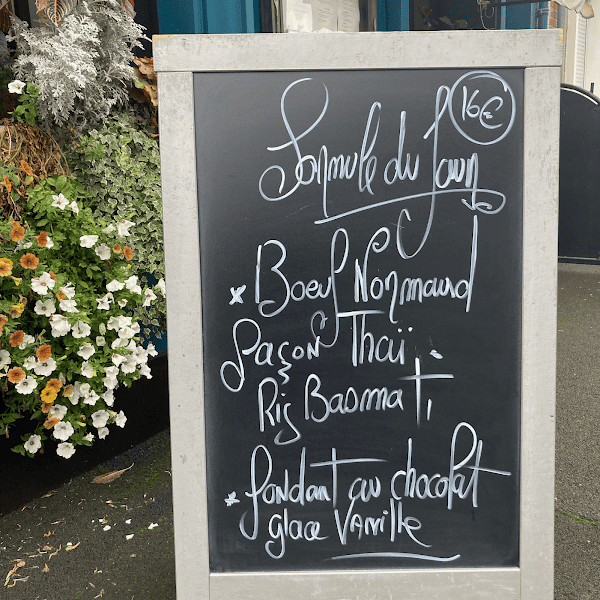 Formule du Jour 16€
* Boeuf Normand
Façon Thaï.
Riz Basmati
* Fondant au chocolat
glace Vanille